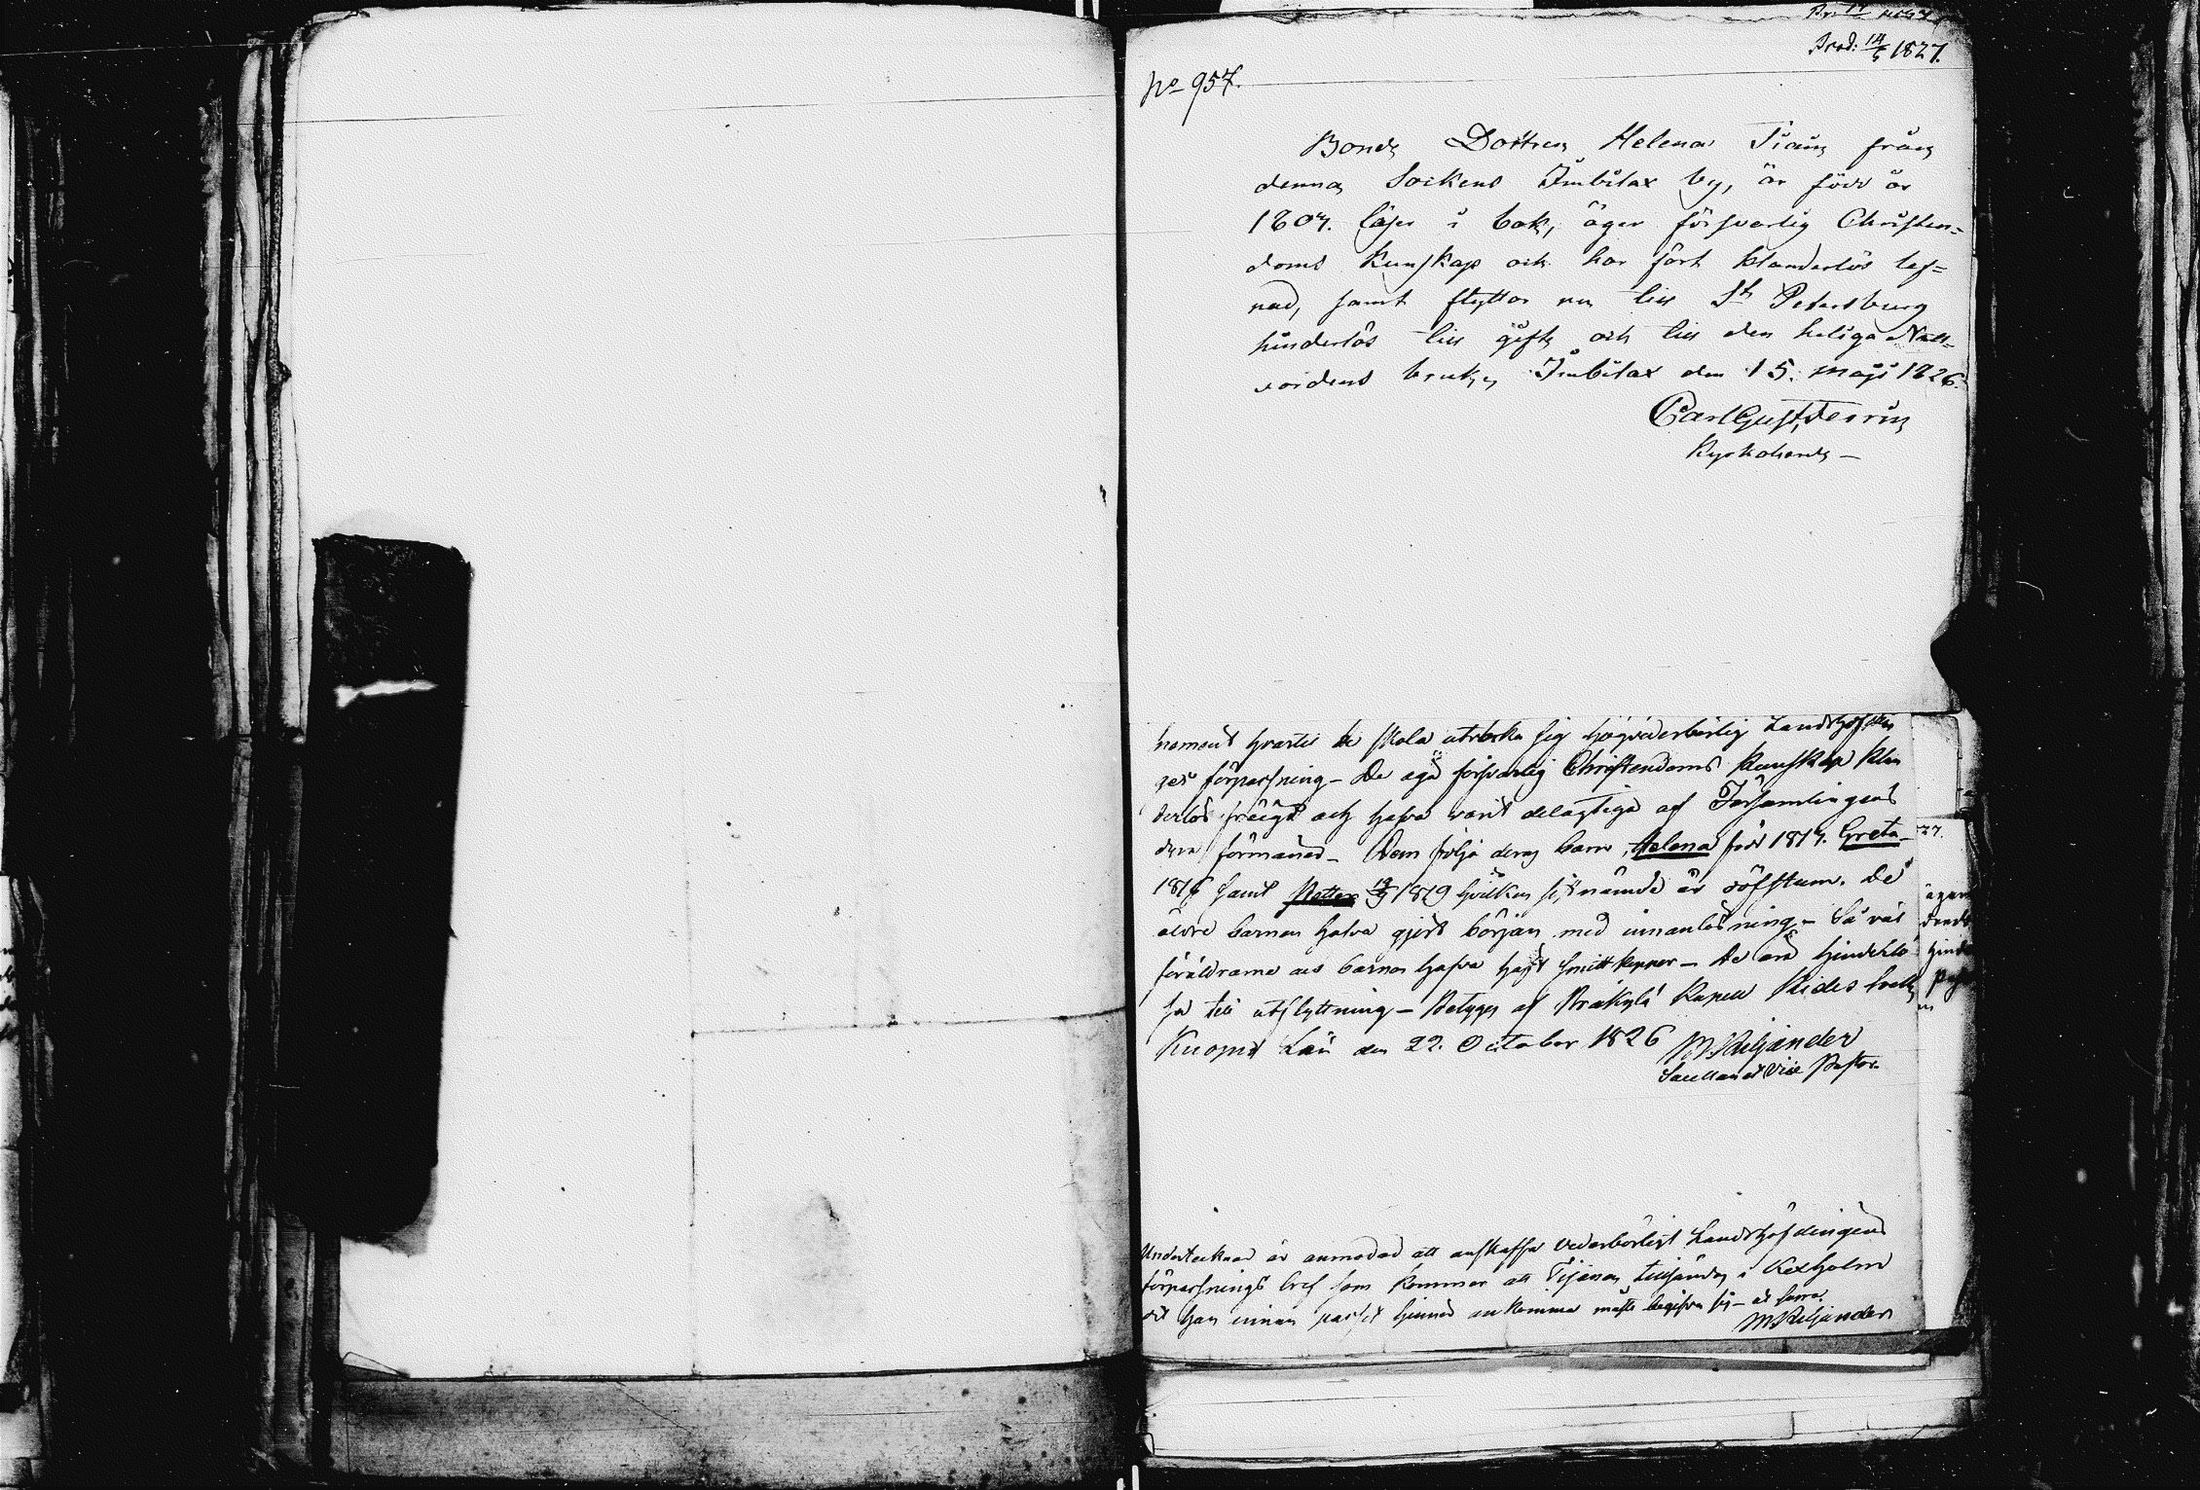 Prod: 14/5 1827.
No 957.
Bonde Dottren Helena Tiain från
denna Sockens Imbilax by, är född år
1804. läser i bok, äger försvarlig Christen=
doms Kunskap och har fört klanderlös lef=
nad, samt flyttar nu till St Petersburg
hinderlös till gifte och till den heliga Natt=
vardens bruk, Imbilax den 15. Maji 1826.
Carl Gust,
Kyrkoherde
hvartil de skola utverka sig högvederbörlig Landshöfdin
ges förpassning - De äga försvarlig Christendoms Kunskap Klan
derlös frägd och hafva varit delagtiga af Församlingens
förmåner - Dem följa deras barn, Helena född 1814. Greta
1816 samt Petter 1819 hvilken sistnämde är döfstum. De
äldre barnen hafva gjort början med innanläsning - Så väl
föräldrarne och barnen hafva haft smittkoppor - De äro hinderlö
sa till utflyttning - Betygas af Bräkylä Kapell Kides Sockn
Kuopio Län den 22. October 1826 M Kiljander
Sacellan et Vice Pastor.
Undertecknad är anmodad att anskaffa vederbörligt Landshöfdingens
förpassnings bref som kommer att Tijanen tillsändas i Kexholm
dit han innan passet hinner ankomma måste begifva sig - ut supra.
M Kiljander